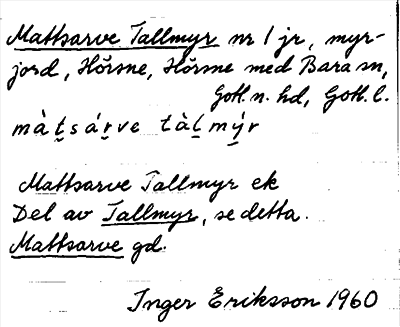 Mattsarve Tallmyr nr 1 jr, myr-
jord, Hörsne, Hörsne med Bara sn,
Gotl. n. hd, Gotl. l.
màt̯sárve tàl̯mýr
Mattsarve Tallmyr ek
Del av Tallmyr, se detta.
Mattsarve gd.
Inger Eriksson 1960